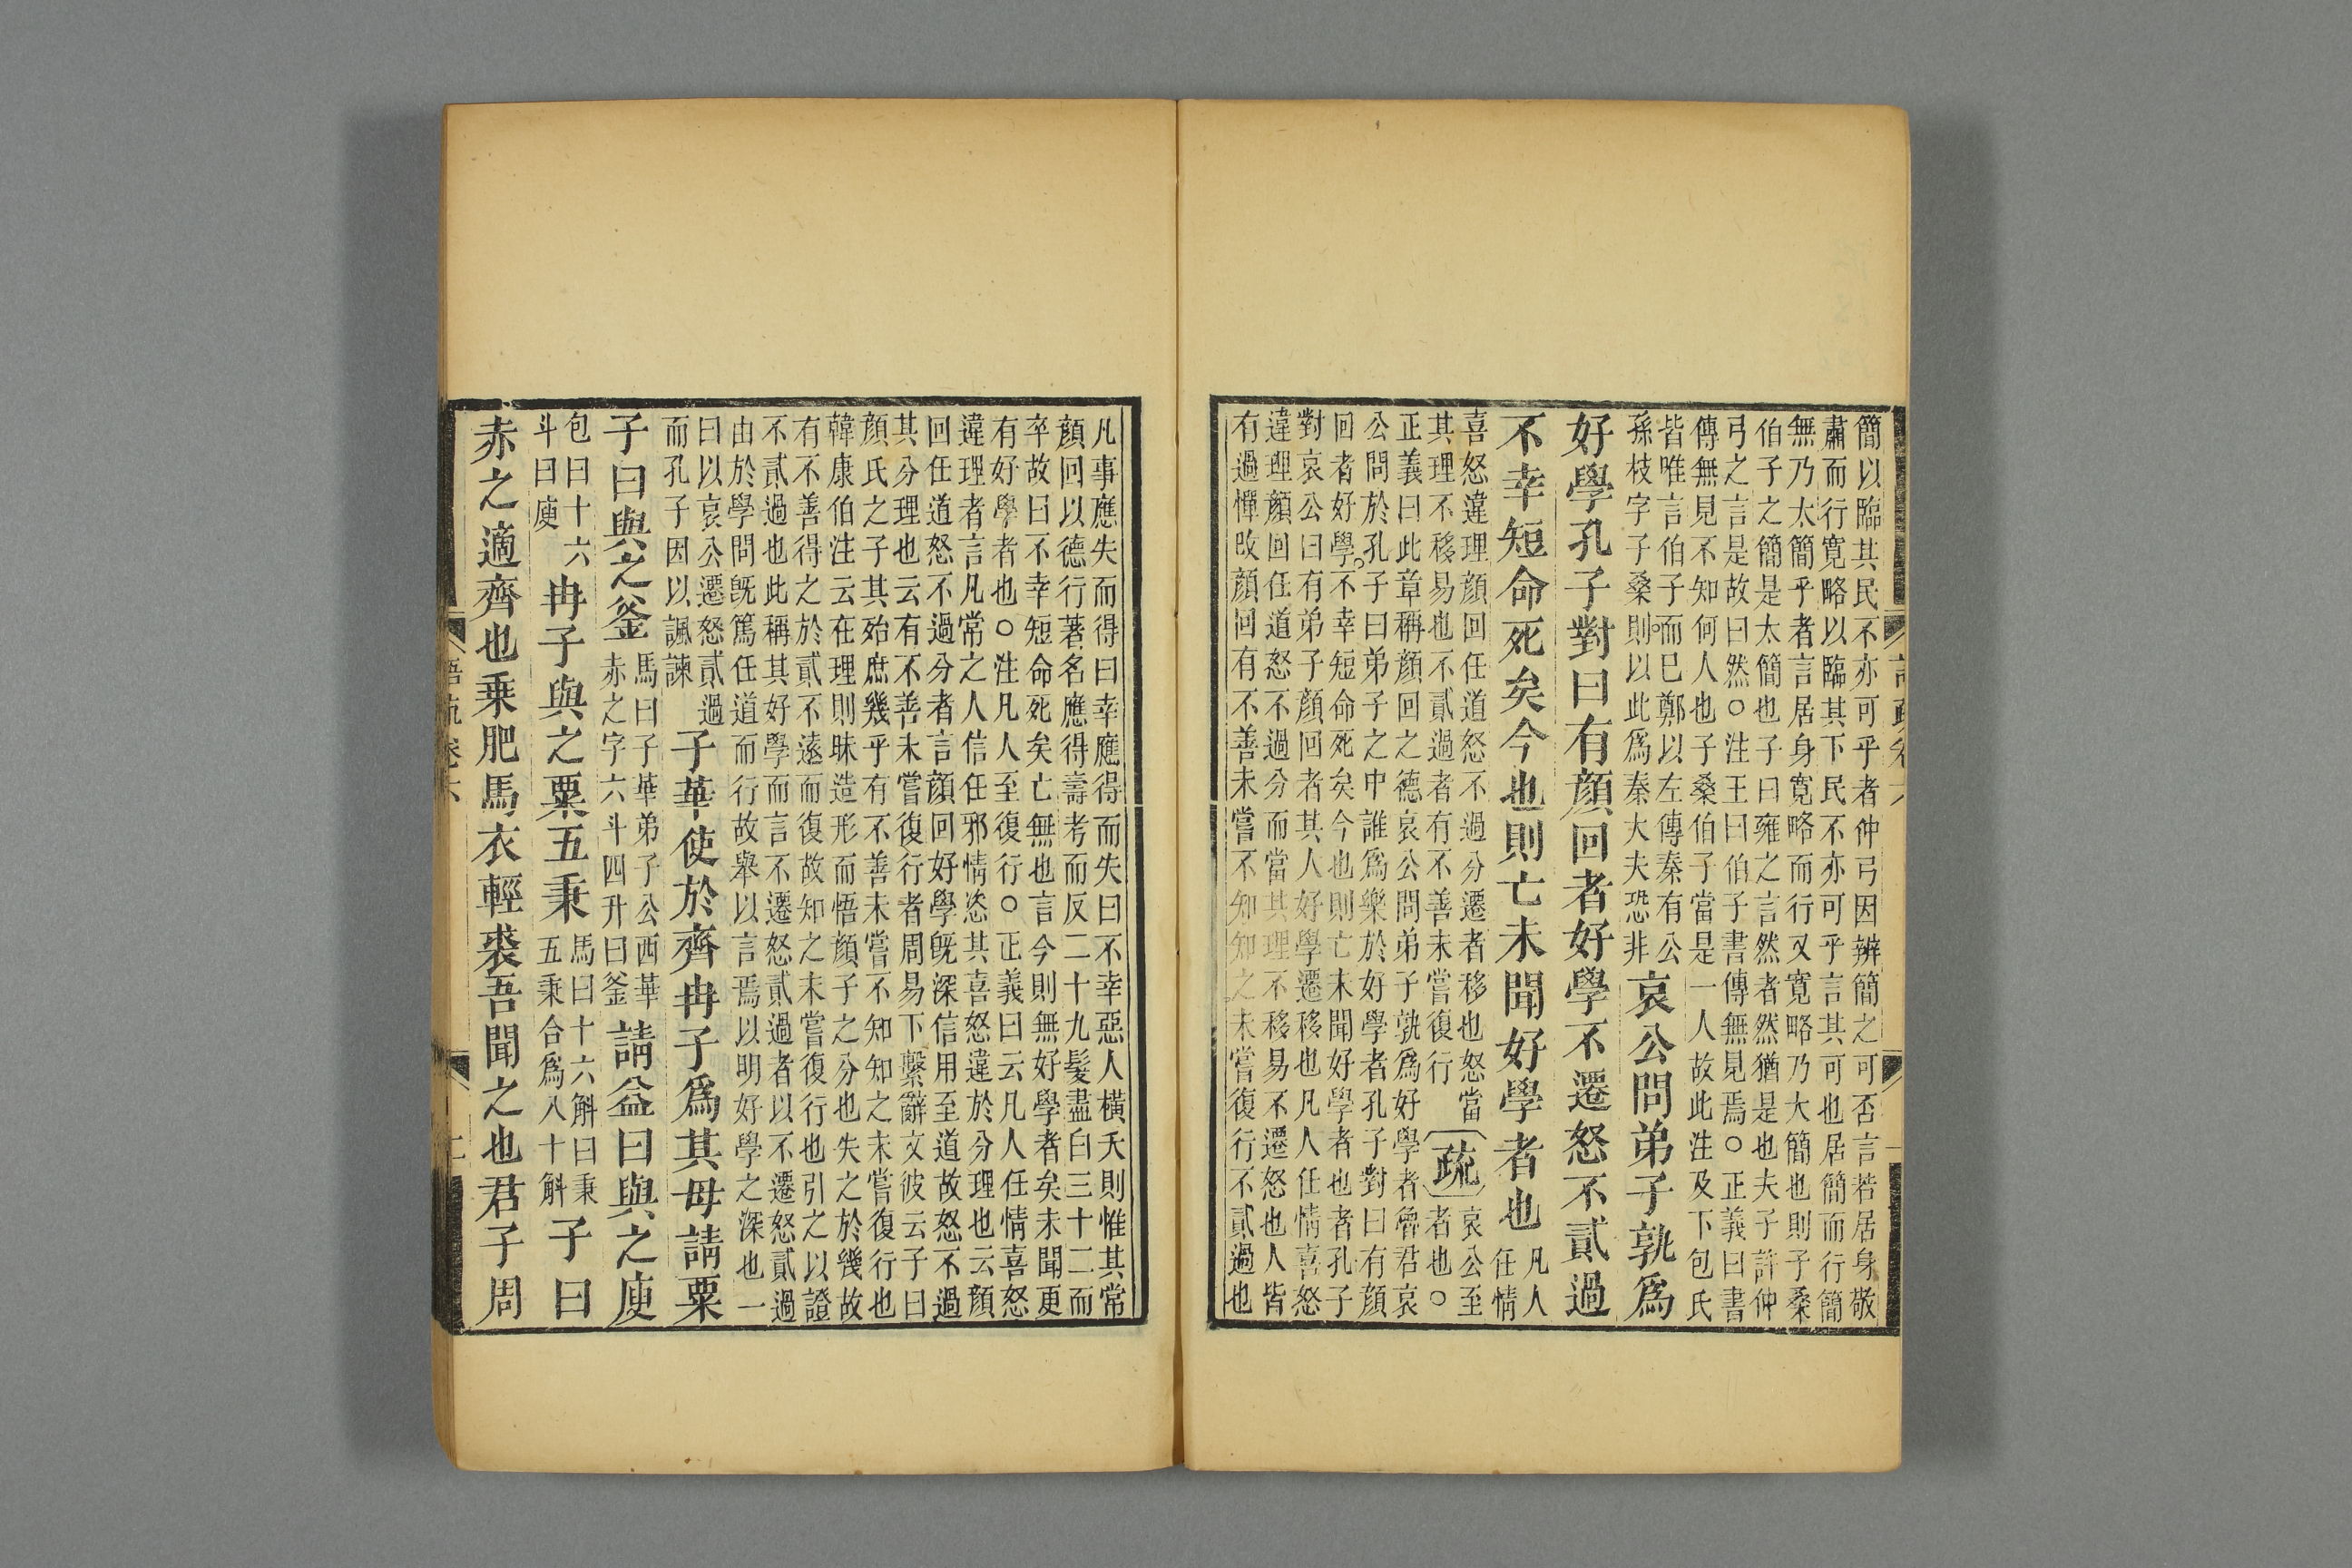 簡以臨其民不亦可乎者仲弓因辨簡之可否言若居身敬
肅而行寬略以臨其下民不亦可乎言其可也居簡而行簡
無乃太簡乎者言居身寬略而行又寬略乃大簡也則子桑
伯子之簡是太簡也子曰雍之言然者然猶是也夫子許仲
弓之言是故曰然○注王曰伯子書傳無見焉○正義曰書
傳無見不知何人也子桑伯子當是一人故此注及下包氏
皆唯言伯子而已鄭以左傳秦有公
孫枝字子桑則以此爲秦大夫恐非
哀公問弟子孰爲
好學孔子對曰有顔回者好學不遷怒不貳過
不幸短命死矣今也則亡未聞好學者也
凡人
任情
喜怒違理顔回任道怒不過分遷者移也怒當
其理不移易也不貳過者有不善未嘗復行
〔疏〕
哀公至
者也○
正義曰此章稱顔回之德哀公問弟子孰爲好學者魯君哀
公問於孔子曰弟子之中誰爲樂於好學者孔子對曰有顔
回者好學不幸短命死矣今也則亡未聞好學者也者孔子
對哀公曰有弟子顔回者其人好學遷移也凡人任情喜怒
違理顔回任道怒不過分而當其理不移易不遷怒也人皆
有過憚改顔回有不善未嘗不知知之未嘗復行不貳過也
凡事應失而得曰幸應得而失曰不幸惡人橫夭則惟其常
顔回以德行著名應得壽考而反二十九髮盡白三十二而
卒故曰不幸短命死矣亡無也言今則無好學者矣未聞更
有好學者也○注凡人至復行○正義曰云凡人任情喜怒
違理者言凡常之人信任邪情恣其喜怒違於分理也云顔
回任道怒不過分者言顔回好學既深信用至道故怒不過
其分理也云有不善未嘗復行者周易下繫辭文彼云子曰
顔氏之子其殆庶幾乎有不善未嘗不知知之未嘗復行也
韓康伯注云在理則昧造形而悟顔子之分也失之於幾故
有不善得之於貳不遠而復故知之未嘗復行也引之以證
不貳過也此稱其好學而言不遷怒貳過者以不遷怒貳過
由於學問既篤任道而行故舉以言焉以明好學之深也一
曰以哀公遷怒貳過
而孔子因以諷諫
子華使於齊冉子爲其母請粟
子曰與之釜
馬曰子華弟子公西華
赤之字六斗四升曰釜
請益曰與之庾
包曰十六
斗曰庾
冉子與之粟五秉
馬曰十六斛曰秉
五秉合爲八十斛
子曰
赤之適齊也乗肥馬衣輕裘吾聞之也君子周